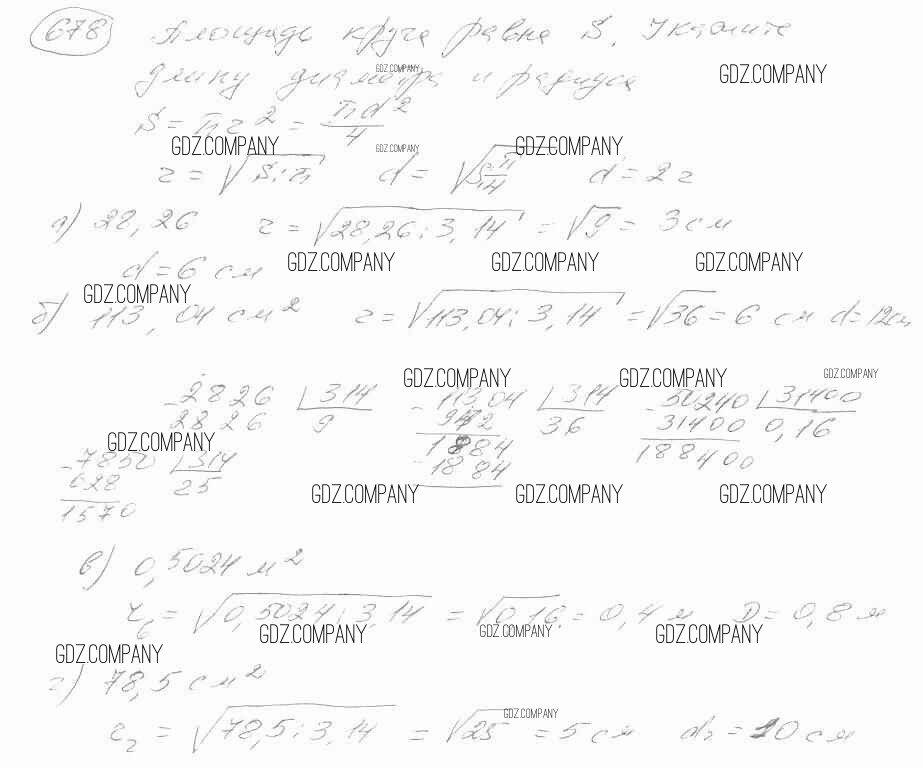 678 Площадь круга равна S. Укажите
GDZ.COMPANY
длину диаметра и радиуса GDZ.COMPANY
S = πr² = πd²/4
GDZ.COMPANY GDZ.COMPANY GDZ.COMPANY
r = √S:π d = √S:π/4 d = 2r
а) 28,26 r = √28,26:3,14 = √9 = 3 см
d = 6 см GDZ.COMPANY GDZ.COMPANY GDZ.COMPANY
GDZ.COMPANY
б) 113,04 см² r = √113,04:3,14 = √36 = 6 см d=12см
GDZ.COMPANY GDZ.COMPANY GDZ.COMPANY
-2826 314 -11304 314 -50240 31400
2826 9 942 36 31400 0,16
GDZ.COMPANY 1884 188400
-7850 314 -1884
628 25
GDZ.COMPANY GDZ.COMPANY GDZ.COMPANY
1570
в) 0,5024 м²
r = √0,5024:3,14 = √0,16 = 0,4 м D = 0,8 м
GDZ.COMPANY GDZ.COMPANY GDZ.COMPANY
GDZ.COMPANY
г) 78,5 см²
GDZ.COMPANY
r₂ = √78,5:3,14 = √25 = 5 см d₂ = 10 см